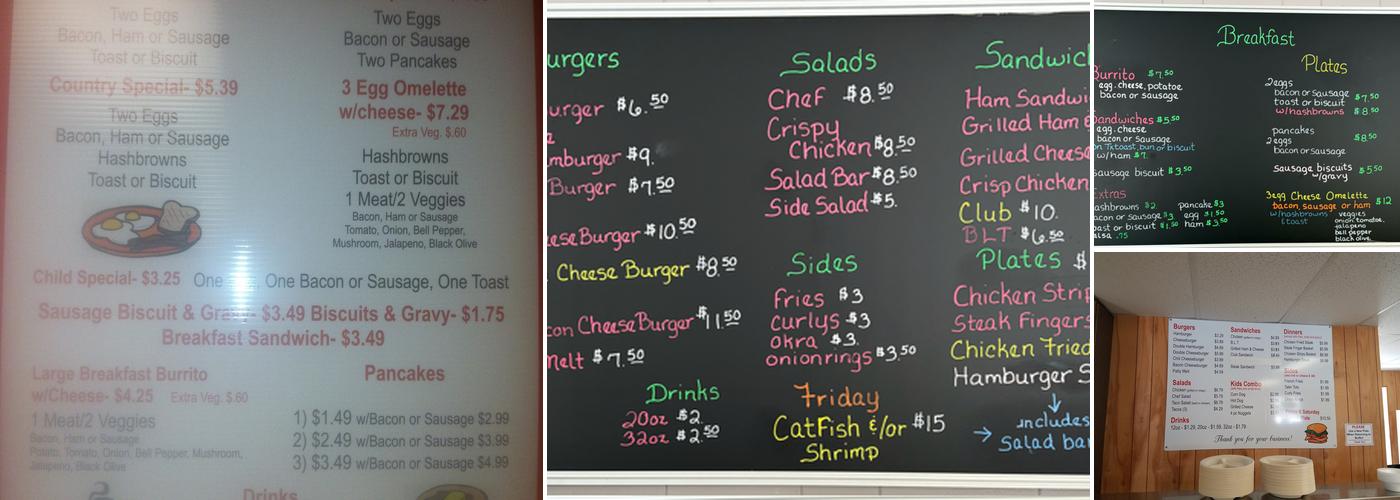 Two Eggs
Bacon, Ham or Sausage
Toast or Biscuit
Country Special- $5.39
Two Eggs
Bacon, Ham or Sausage
Hashbrowns
Toast or Biscuit
Two Eggs
Bacon or Sausage
Two Pancakes
3 Egg Omelette
w/cheese- $7.29
Extra Veg. $.60
Hashbrowns
Toast or Biscuit
1 Meat/2 Veggies
Bacon, Ham or Sausage
Tomato, Onion, Bell Pepper,
Mushroom, Jalapeno, Black Olive
Child Special- $3.25 One One Bacon or Sausage, One Toast
Sausage Biscuit & Gravy- $3.49 Biscuits & Gravy- $1.75
Breakfast Sandwich- $3.49
Large Breakfast Burrito
w/Cheese- $4.25 Extra Veg. $.60
1 Meat/2 Veggies
Bacon, Ham or Sausage
Potato, Tomato, Onion, Bell Pepper, Mushroom,
Jalapeno, Black Olive
Pancakes
1) $1.49 w/Bacon or Sausage $2.99
2) $2.49 w/Bacon or Sausage $3.99
3) $3.49 w/Bacon or Sausage $4.99
Drinks
urgers
urger $6.50
mburger $9.
Burger $7.50
eseBurger $10.50
Cheese Burger $8.50
con CheeseBurger $11.50
melt $7.50
Drinks
20oz $2.
32oz $2.50
Salads
Chef $8.50
Crispy
Chicken $8.50
Salad Bar $8.50
Side Salad $5.
Sides
Fries $3
curlys $3
okra $3.
onionrings $3.50
Friday
CatFish &/or $15
Shrimp
Sandwich
Ham Sandwi
Grilled Ham &
Grilled Cheese
Crisp Chicken
Club $10.
BLT $6.50
Plates $
Chicken Strip
Steak Fingers
Chicken Fried
Hamburger S
includes
Salad bar
Breakfast
Burrito $7.50
egg, cheese, potatoe
bacon or sausage
Sandwiches $5.50
egg, cheese
bacon or sausage
on Tx toast, bun or biscuit
w/ham $7.
sausage biscuit $3.50
Extras
hashbrowns $2. pancake $3
bacon or sausage $3 egg $1.50
toast or biscuit $1.50 ham $3.50
salsa .75
Plates
2 eggs
bacon or sausage
toast or biscuit $7.50
w/hashbrowns $8.50
pancakes
2 eggs $8.50
bacon or sausage
sausage biscuits $5.50
w/gravy
3 egg Cheese Omelette
bacon, sausage or ham $12
w/hashbrowns
& toast
veggies
onion, tomato,
jalapeno
bell pepper
black olive
Burgers
Hamburger
Cheeseburger
Double Hamburger
Double Cheeseburger
Chili Cheeseburger
Bacon Cheeseburger
Patty Melt
Salads
Chicken
Chef Salad
Taco Salad
Tacos (3)
Drinks
12oz - $1.29, 20oz - $1.59, 32oz - $1.79
Sandwiches
Chicken
B.L.T.
Grilled Ham & Cheese
Club Sandwich
Steak Sandwich
Kids Combo
Corn Dog
Hot Dog
Grilled Cheese
4 pc Nuggets
Dinners
Chicken Fried Steak
Steak Finger Basket
Chicken Strips Basket
Hamburger Steak
Sides
French Fries
Tater Tots
Thank you for your business!
PLEASE